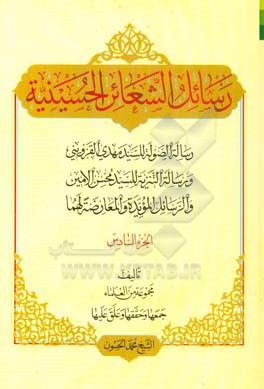 رسائل الشعائر الحسينية
رسالة الصولة للسيد مهدي القزويني
ورسالة التنزيه للسيد محسن الأمين
والرسائل المؤيدة والمعارضة لهما
الجزء السادس
تأليف
مجموعة من العلماء
جمعها وحققها وعلق عليها
الشيخ محمد الحسون
WWW.KETAB.IR